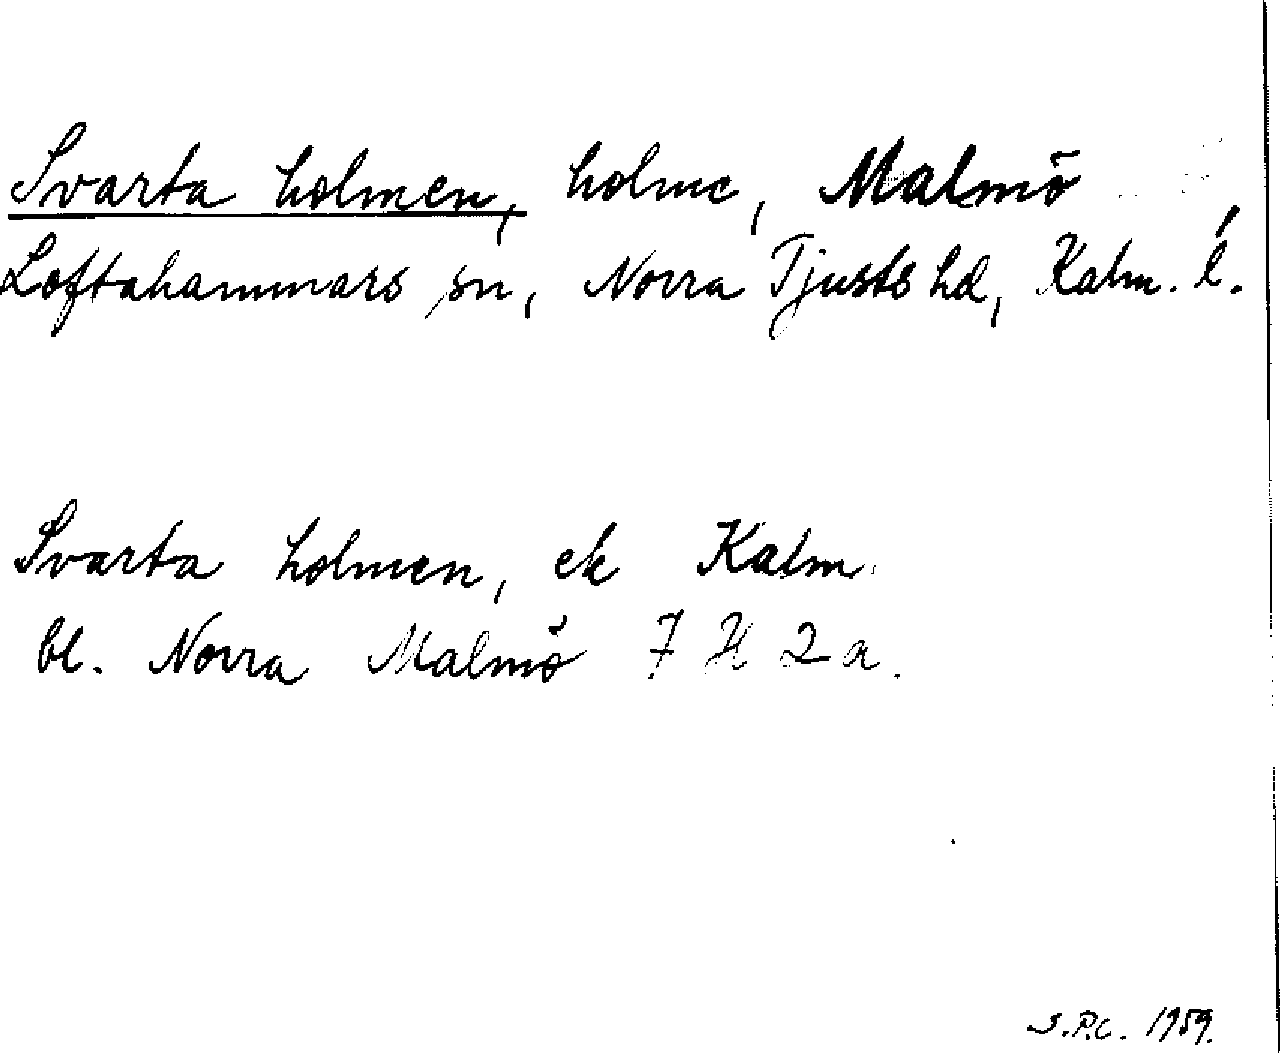 Svarta holmen, holme, Malmö,
Loftahammars sn, Norra Tjusts hd, Kalm. l.
Svarta holmen, ek Kalm.
bl. Norra Malmö 7 H 2 a.
S.P.C. 1959.